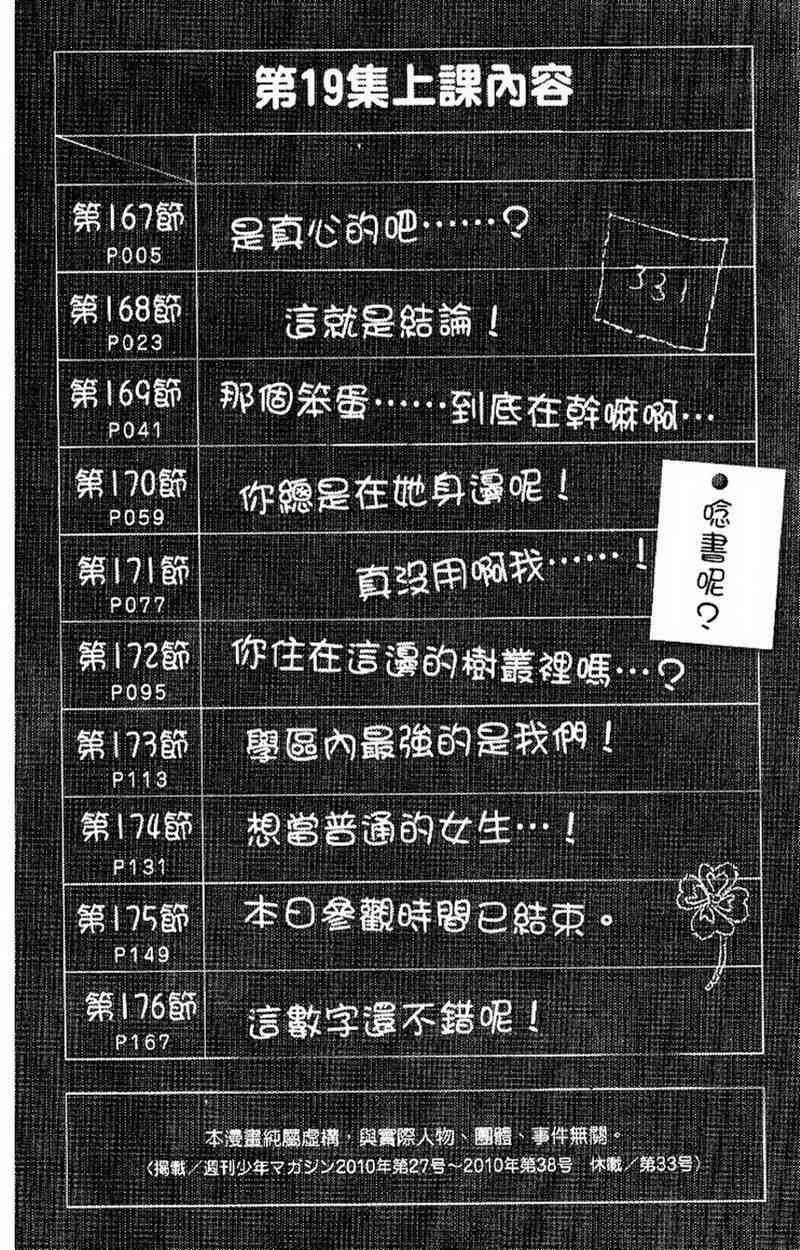 第19集上課內容
第167節
P005
是真心的吧……？
331
第168節
P023
這就是結論！
第169節
P041
那個笨蛋……到底在幹嘛啊…
第170節
P059
你總是在她身邊呢！
唸書呢？
第171節
P077
真沒用啊我……！
第172節
P095
你住在這邊的樹叢裡嗎…？
第173節
P113
學區內最強的是我們！
第174節
P131
想當普通的女生…！
第175節
P149
本日參觀時間已結束。
第176節
P167
這數字還不錯呢！
本漫畫純屬虛構，與實際人物、團體、事件無關。
（掲載／週刊少年マガジン2010年第27号～2010年第38号　休載／第33号）